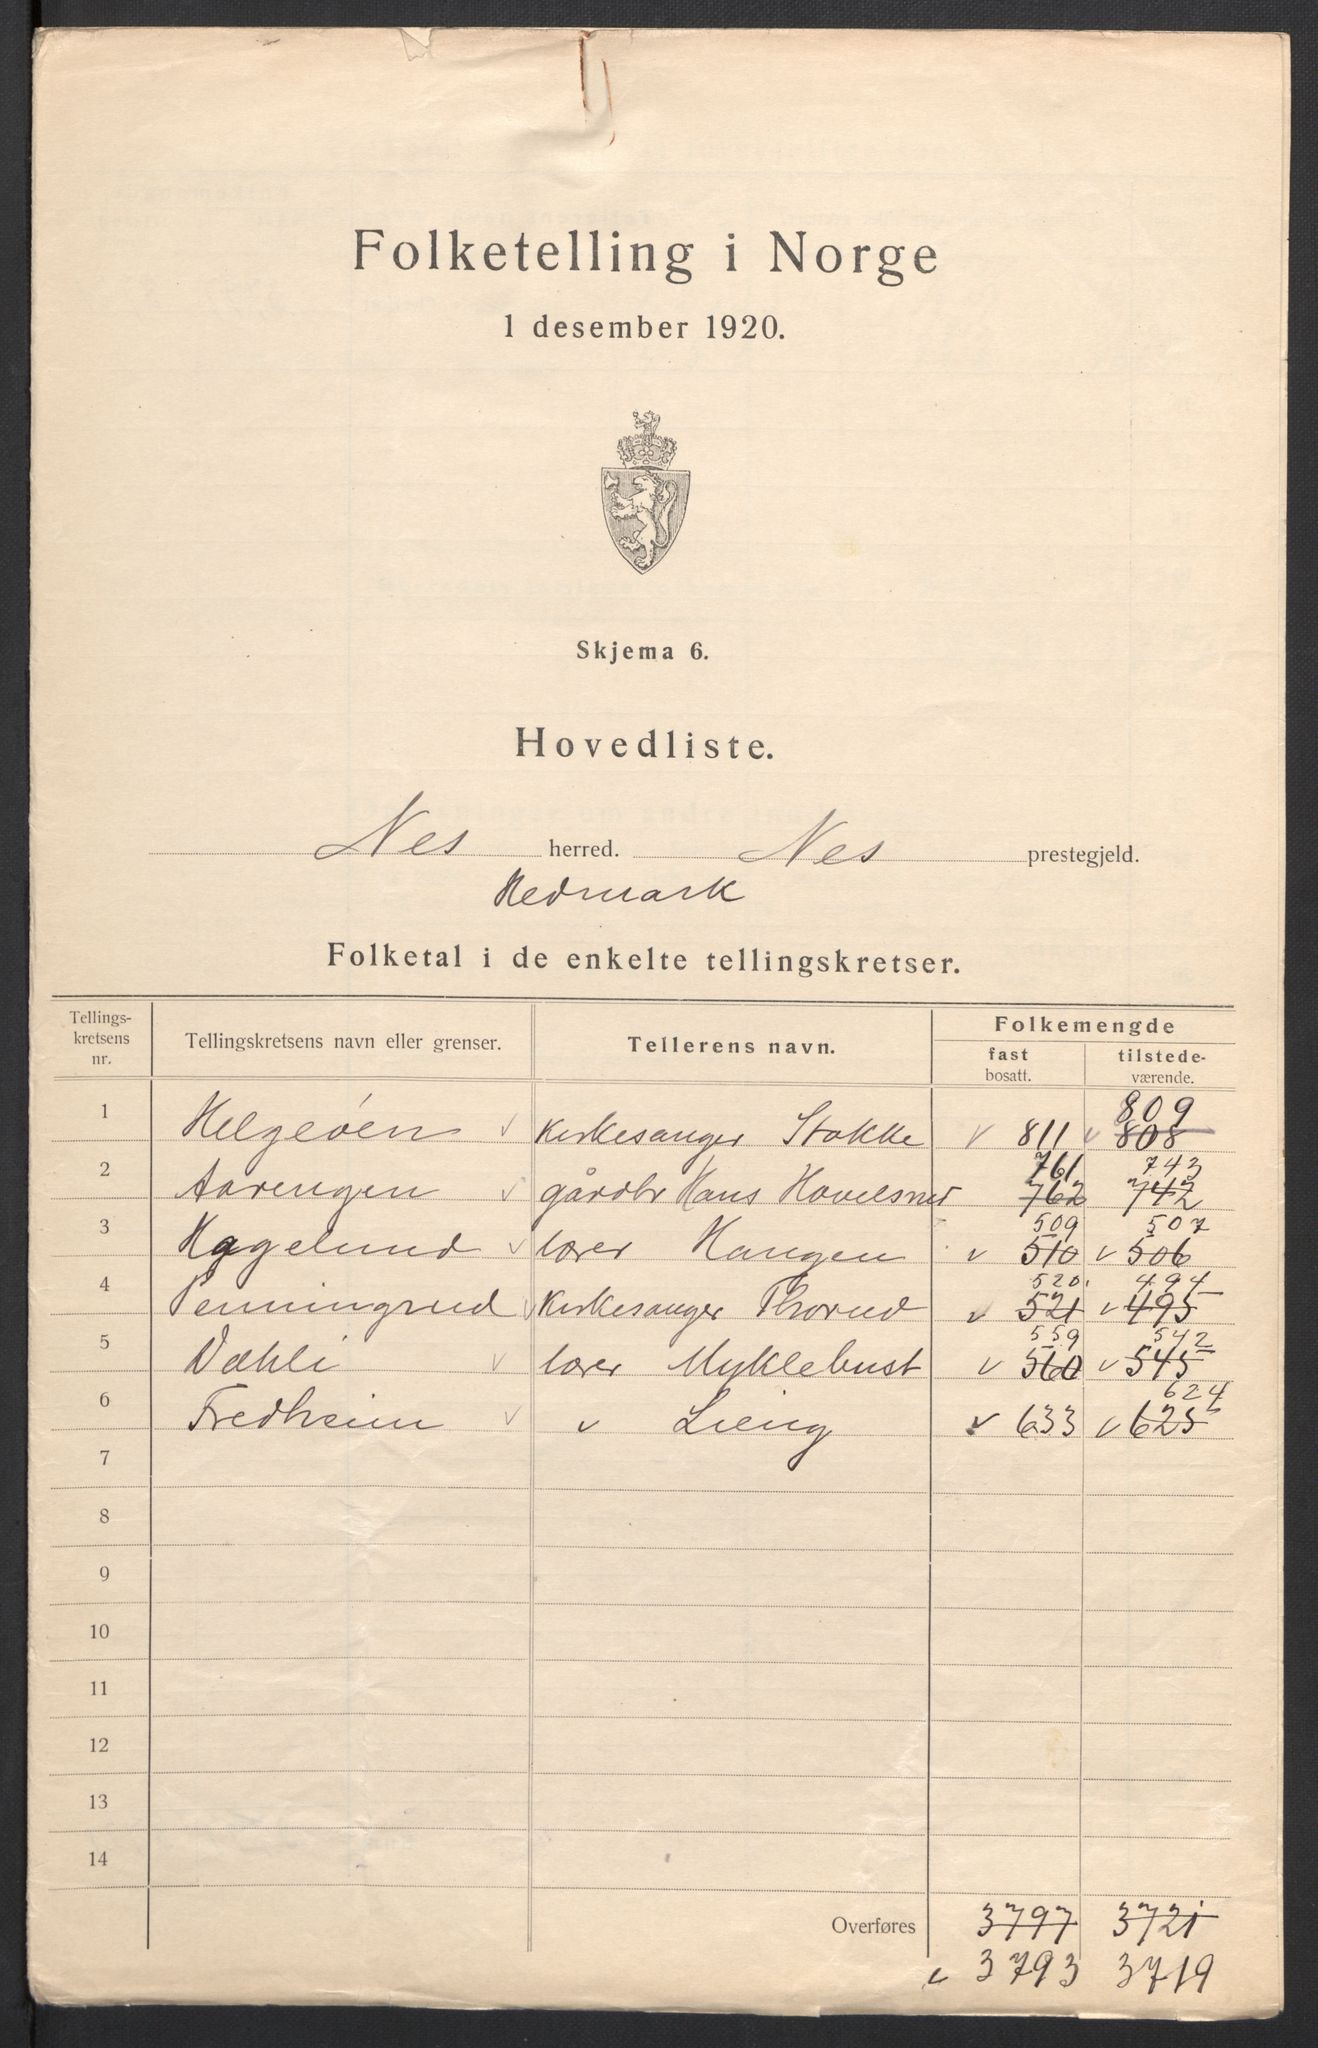 Folketelling i Norge
1 desember 1920.
Skjema 6.
Hovedliste.
Nes herred. Nes prestegjeld.
Hedmark
Folketal i de enkelte tellingskretser.
Tellings-kretsens nr. Tellingskretsens navn eller grenser. Tellerens navn. Folkemengde
fast bosatt. tilstede-værende.
809
1 Helgeøen v Kirkesanger Stokke v 811 v 808
761 743
2 Aarengen v gårdbr Hans Hovelsrud 762 742
509 507
3 Hagelund v lærer Haugen v 510 v 506
520 494
4 Penningrud v Kirkesanger Thorud v 521 v 495
559 542
5 Dæhli v lærer Myklebust v 560 v 545
624
6 Fredheim v v Lieng v 633 v 625
7
8
9
10
11
12
13
14
Overføres 3797 3721
v 3793 3719